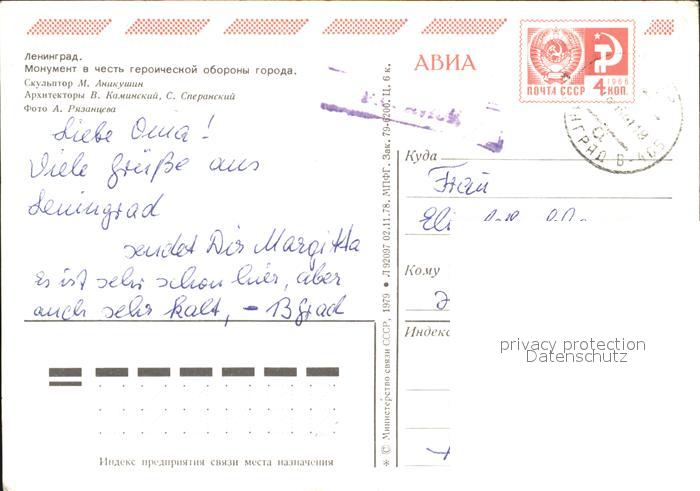 Ленинград.
Монумент в честь героической обороны города.
Скульптор М. Аникушин
Архитекторы В. Каминский, С. Сперанский
Фото А. Рязанцева
АВИА
1966
ПОЧТА СССР 4 КОП.
Liebe Oma!
Viele Grüße aus
Leningrad
sendet Dir Margitta
es ist sehr schön hier, aber
auch sehr kalt, – 13 grad
Куда
Frau
Eli
Кому
Индекс
privacy protection
Datenschutz
Индекс предприятия связи места назначения
* © Министерство связи СССР, 1979 ● Л 92097 02.11.78. МПФГ. Зак. 79-6200. Ц. 6 к.